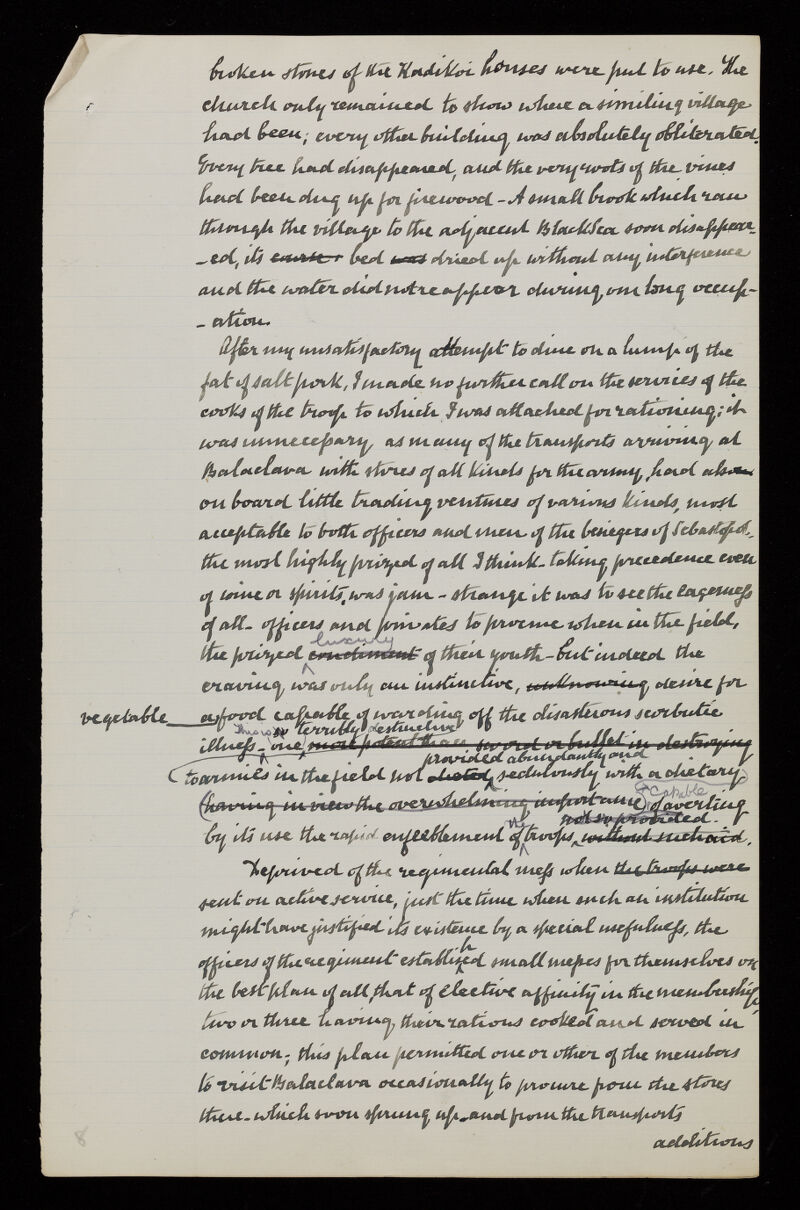 broken stones of the Kadikoi houses were put to use. The
church only remained to show where a similing village
had been; every other building was absolutely obliterated.
Every tree had disappeared, and the very roots of the vines
had been dug up for firewood - A small brook which ran
through the village to the adjacent Black Sea soon disappear-
-ed, its course bed was dried up without any interference
and the water did not reappear during our long occup-
-ation.
After my unsatisfactory attempt to dine on a lump of the
fat of salt pork, I made no further call on the services of the
cooks of the troop to which I was attached for rationing; it
was unnecessary, as many of the transports arriving at
Balaclava with stores of all kinds for the army, had also
on board little trading ventures of various kinds, most
acceptable to both officers and men of the besiegers of Sebastopol,
the most highly prized of all I think - taking precedence even
of wine or spirits, was jam - strange it was to see the eagerness
of all - officers and privates to procure when in the field,
luxury
the prized condiment of their youth - but indeed the
craving was only an instinctive, unknowing desire for
vegetable a food capable of warding off the disastrous scorbutic
so terribly destructive
illness - one most potent than sword or bullet in destroying
provided abundantly and
to armies in the field not dieted sedulously with a dietary
capable
(having in view the overwhelming importance) of averting
the not so provided.
by its use the rapid enfeeblement of troops, without such aid.
Deprived of the regimental mess when the troops were
sent on active service, just the time when such an institution
might have justified its existence by a special usefulness, the
officers of the regiment established small messes for themselves on
the best plan of all, that of elective affinity in the membership,
two or three having their rations cooked and served in
common; this plan permitted one or other of the members
to visit Balaclava occasionally to procure from the stores
there - which soon sprung up - and from the transports
additions
8